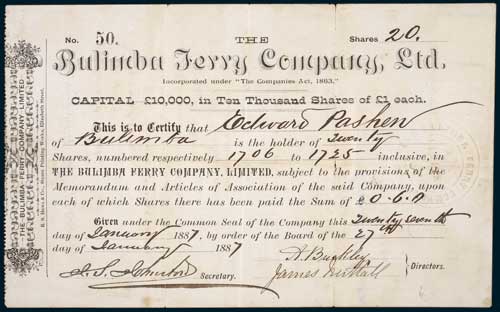 No. 50. THE Shares 20.
Bulimba Ferry Company, Ltd.
Incorporated under "The Companies Act, 1863."
CAPITAL £10,000, in Ten Thousand Shares of £1 each.
This is to Certify that Edward Pashen
of Bulimba is the holder of Twenty
Shares, numbered respectively 1706 to 1725 inclusive, in
THE BULIMBA FERRY COMPANY, LIMITED, subject to the provisions of the
Memorandum and Articles of Association of the said Company, upon
each of which Shares there has been paid the Sum of £0.6.
Given under the Common Seal of the Company this Twenty seventh
day of January 1887, by order of the Board of the 27th
day of January 1887
Secretary.
A. Buckley
James
Directors.
THE BULIMBA FERRY COMPANY LIMITED